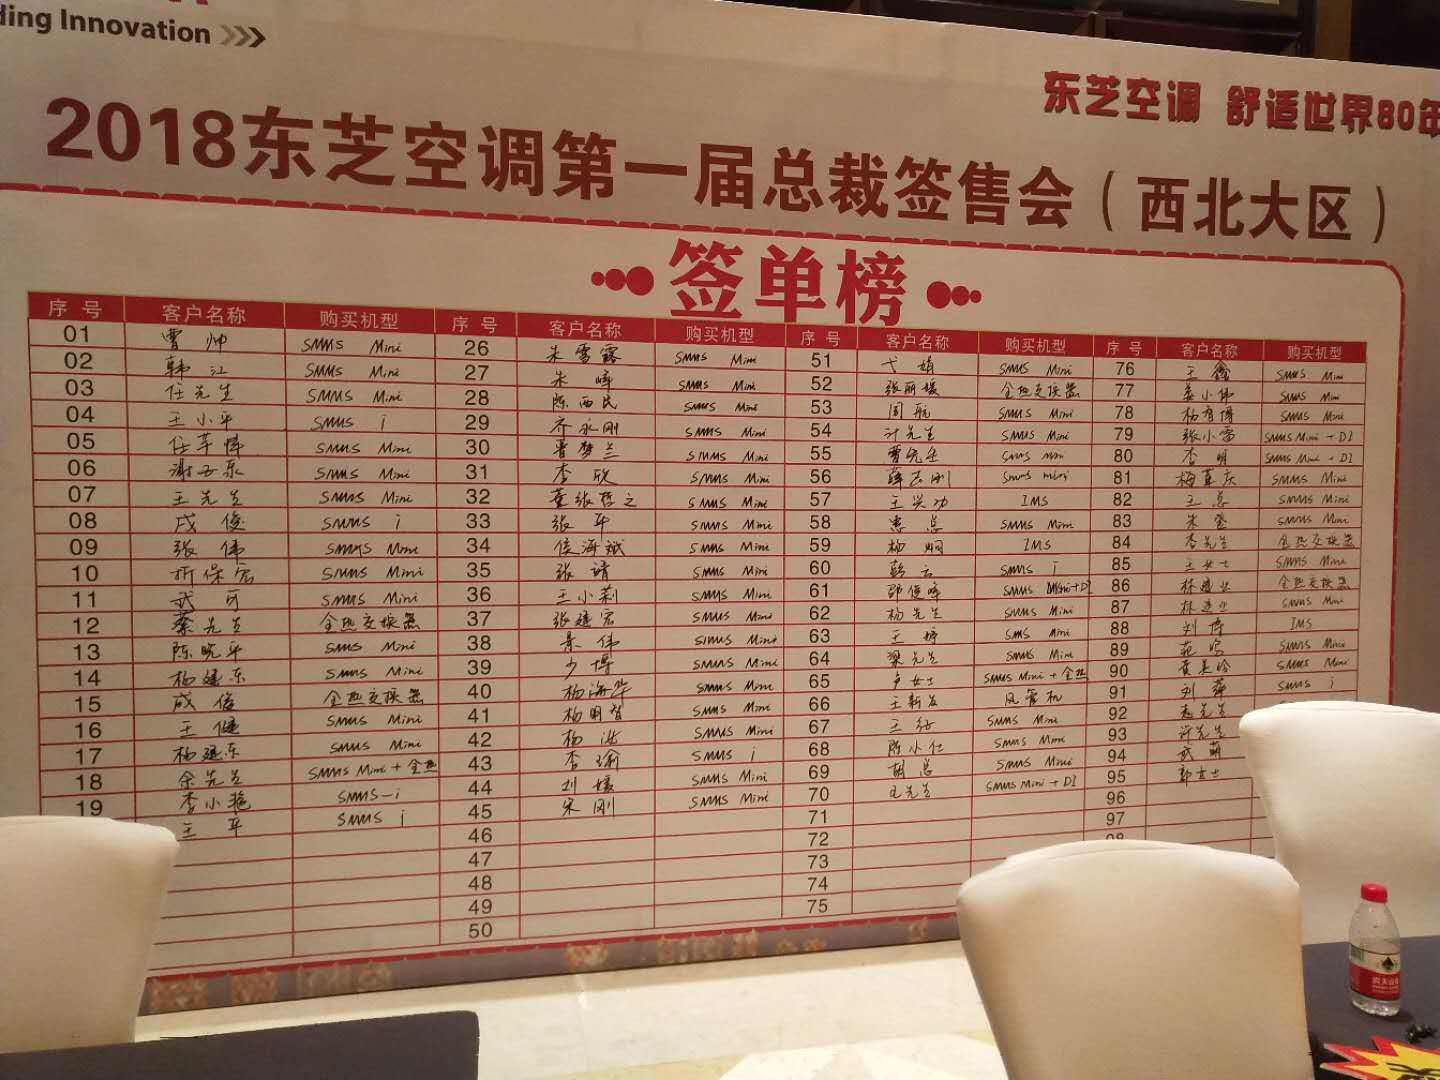 ding Innovation
东芝空调 舒适世界80年
2018东芝空调第一届总裁签售会（西北大区）
签单榜
序号 客户名称 购买机型 序号 客户名称 购买机型 序号 客户名称 购买机型 序号 客户名称 购买机型
01 曹帅 SMMS Mini 26 朱雪露 SMMS Mini 51 弋娟 SMMS Mini 76 王鑫 SMMS Mini
02 韩江 SMMS Mini 27 朱峰 SMMS Mini 52 张丽媛 全热交换器 77 姜小伟 SMMS Mini
03 任先生 SMMS Mini 28 陈西民 SMMS Mini 53 周航 SMMS Mini 78 SMMS Mini
04 王小平 SMMS i 29 齐永刚 SMMS Mini 54 计先生 SMMS Mini 79 张小雷 SMMS Mini + DI
05 SMMS Mini 30 晋梦兰 SMMS Mini 55 曹先生 SMMS mini 80 李明 SMMS Mini + DI
06 SMMS Mini 31 李欣 SMMS Mini 56 薛云刚 SMMS mini 81 SMMS Mini
07 王先生 SMMS Mini 32 SMMS Mini 57 王兴功 IMS 82 王总 SMMS Mini
08 成俊 SMMS i 33 张军 SMMS Mini 58 惠总 SMMS Mini 83 SMMS Mini
09 张伟 SMMS Mini 34 侯海斌 SMMS Mini 59 杨炯 IMS 84 李先生 全热交换器
10 折保宏 SMMS Mini 35 张靖 SMMS Mini 60 SMMS i 85 王女士 SMMS Mini
11 武可 SMMS Mini 36 王小莉 SMMS Mini 61 郭俊峰 SMMS Mini+DI 86 林建业 全热交换器
12 蔡先生 全热交换器 37 张建宏 SMMS Mini 62 杨先生 SMMS Mini 87 林建业 SMMS Mini
13 陈晓平 SMS Mini 38 景伟 SMMS Mini 63 王婷 SMS Mini 88 刘博 IMS
14 杨建东 SMMS Mini 39 少博 SMMS Mini 64 梁先生 SMMS Mini 89 SMMS Mini
15 成俊 全热交换器 40 杨海华 SMMS Mini 65 卢女士 SMMS Mini + 全热 90 SMMS Mini
16 王健 SMMS Mini 41 杨明智 SMMS Mini 66 王新友 风管机 91 刘萍 SMMS i
17 杨建东 SMMS Mini 42 杨洪 SMMS Mini 67 SMMS Mini 92 赵先生
18 余先生 SMMS Mini + 全热 43 李瑜 SMMS i 68 陈小仁 SMMS Mini 93 许先生
19 李小艳 SMMS-i 44 刘媛 SMMS Mini 69 胡总 SMMS Mini 94 武萌
王军 SMMS i 45 宋刚 SMMS Mini 70 SMMS Mini + DI 95 郭女士
46 71 96
47 72 97
48 73 98
49 74
50 75